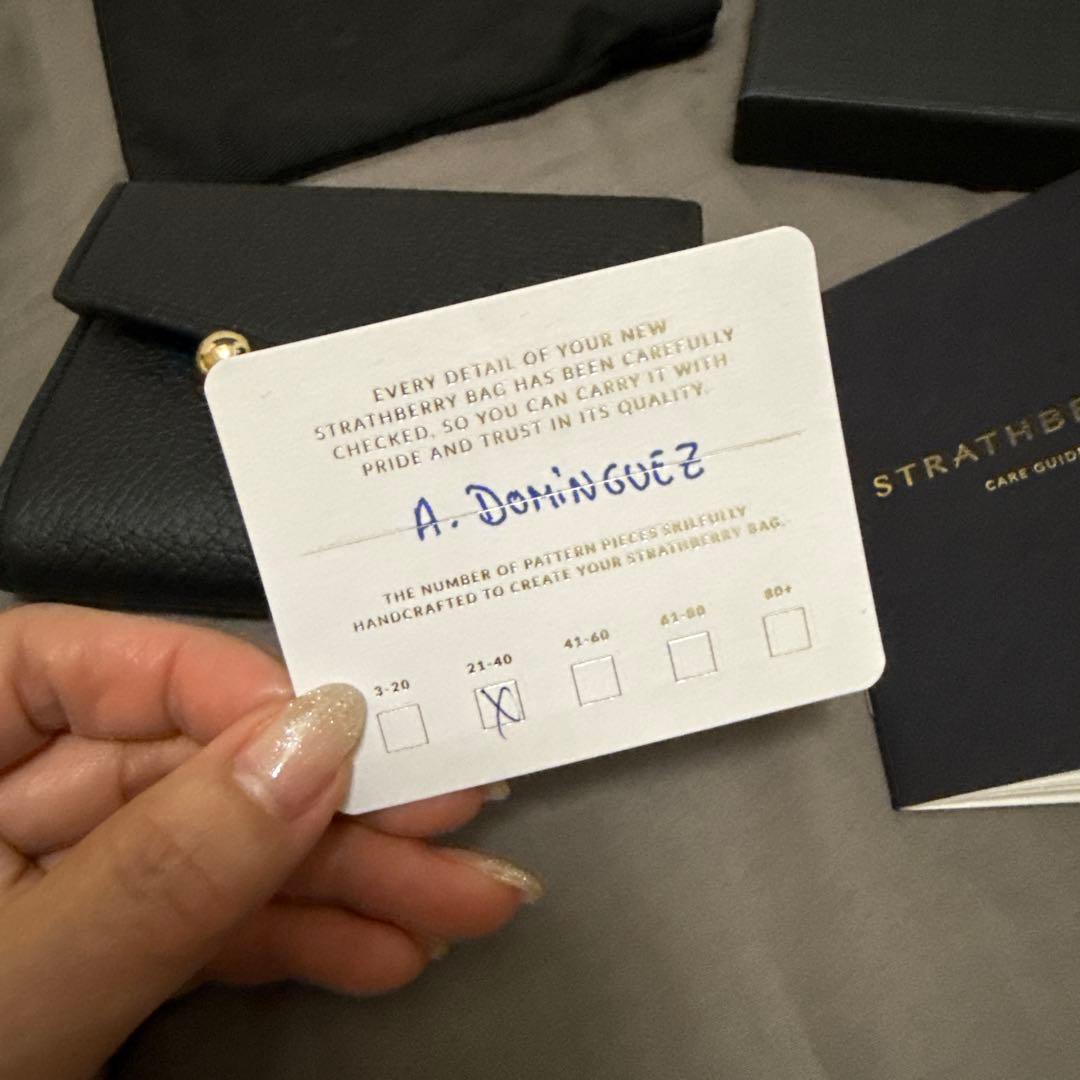 EVERY DETAIL OF YOUR NEW
STRATHBERRY BAG HAS BEEN CAREFULLY
CHECKED, SO YOU CAN CARRY IT WITH
PRIDE AND TRUST IN ITS QUALITY.
A. DOMiNGUEZ
THE NUMBER OF PATTERN PIECES SKILFULLY
HANDCRAFTED TO CREATE YOUR STRATHBERRY BAG.
3-20 21-40 41-60 61-80 80+
X
STRATHBE
CARE GUIDE